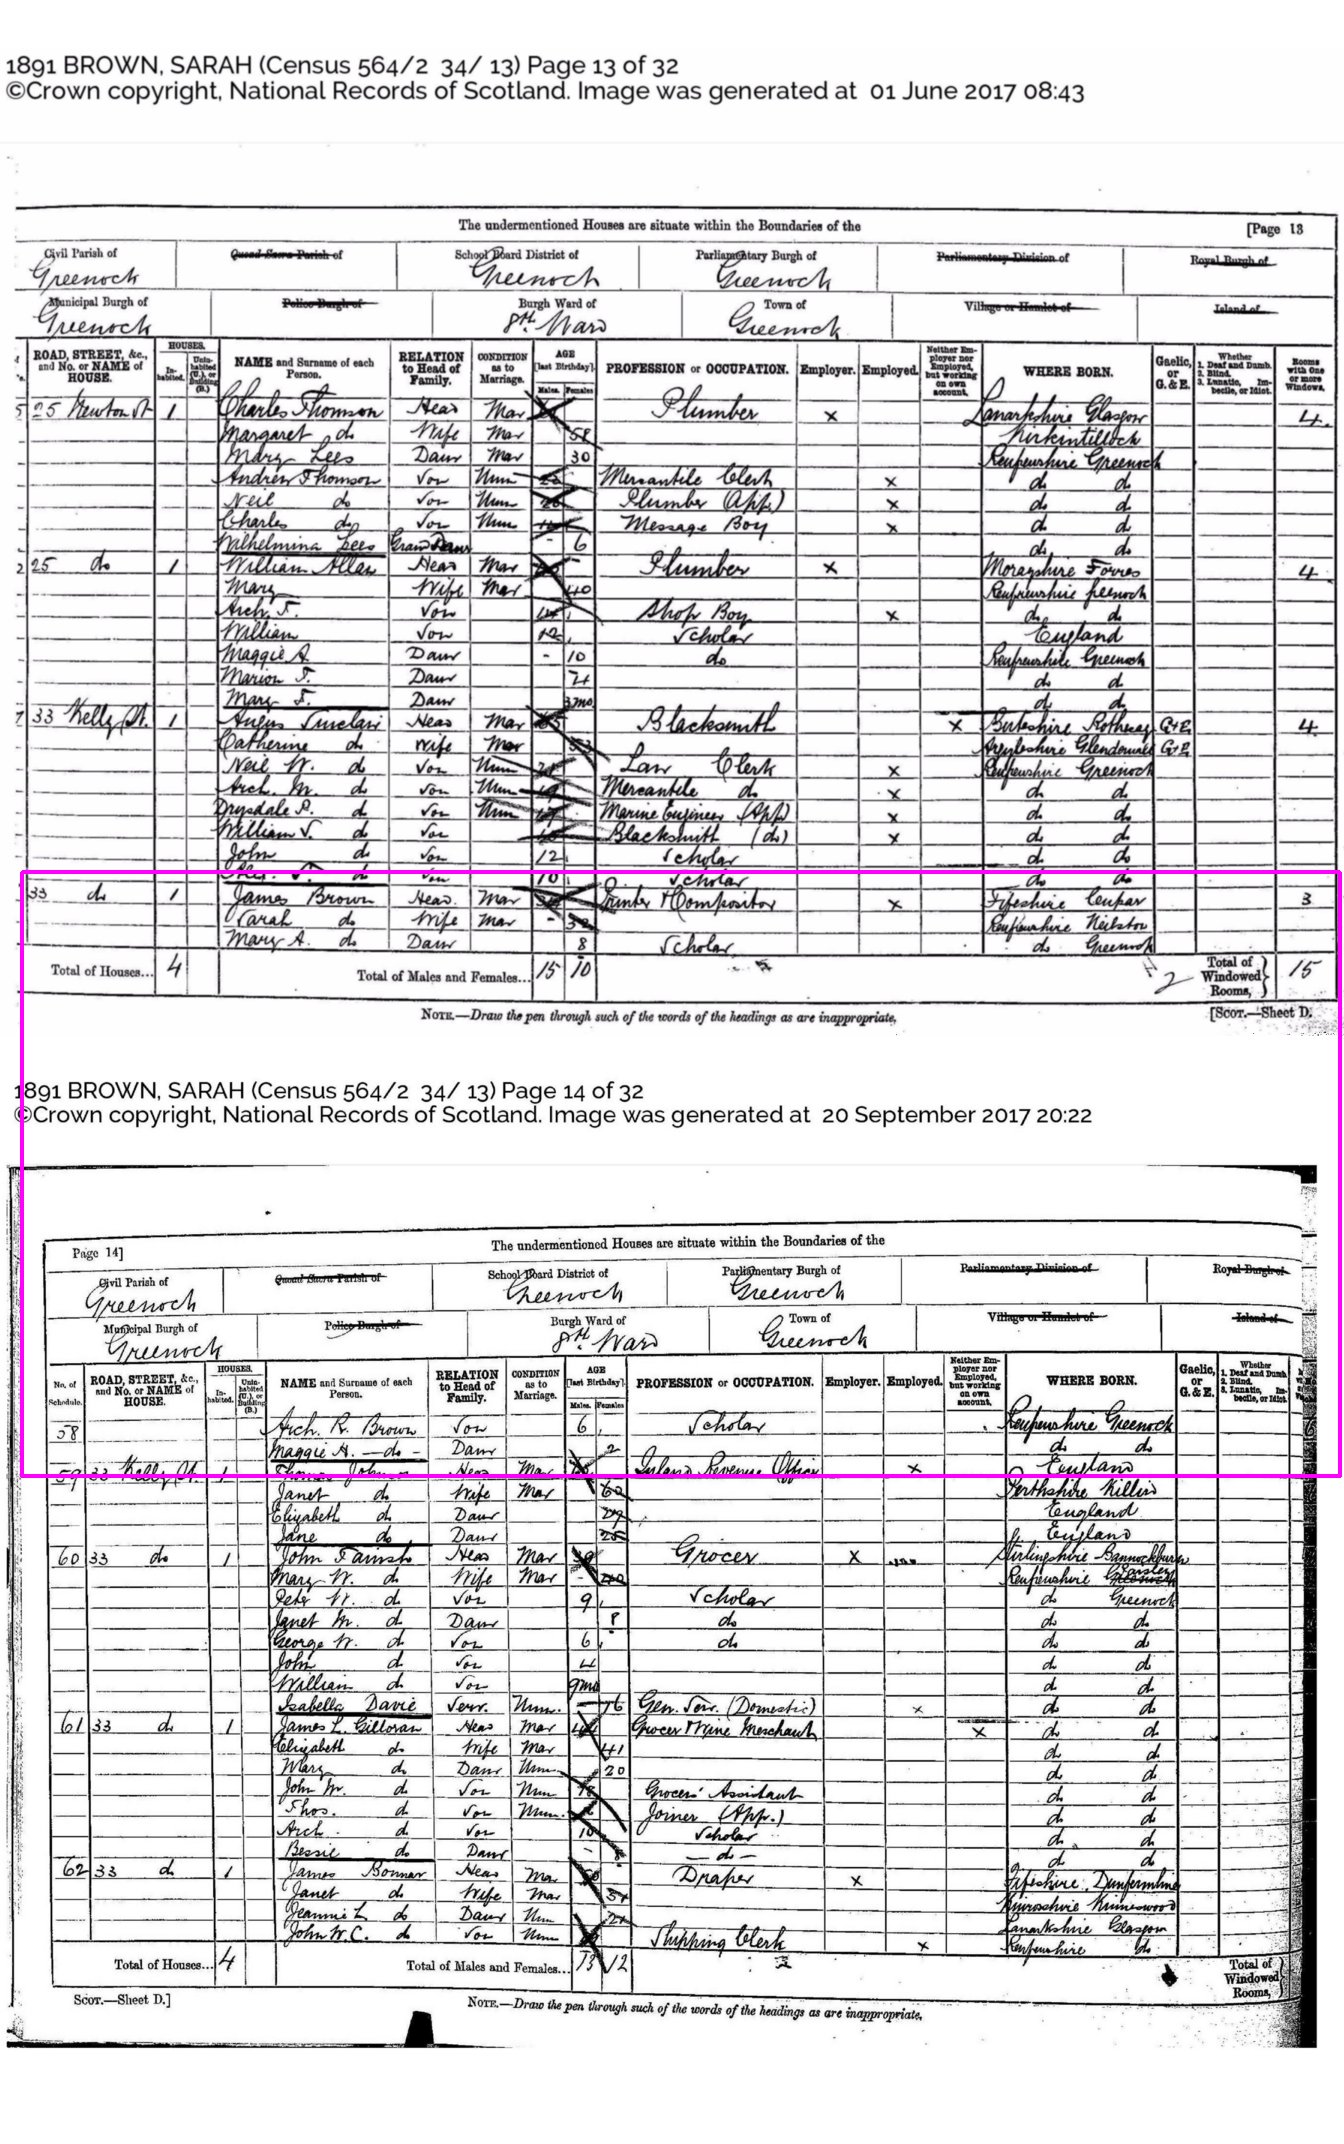 1891 BROWN, SARAH (Census 564/2 34/ 13) Page 13 of 32
©Crown copyright, National Records of Scotland. Image was generated at 01 June 2017 08:43
The undermentioned Houses are situate within the Boundaries of the [Page 13
Civil Parish of Quoad Sacra Parish of School Board District of Parliamentary Burgh of Parliamentary Division of Royal Burgh of
Greenock Greenock Greenock
Municipal Burgh of Police Burgh of Burgh Ward of Town of Village or Hamlet of Island of
Greenock 8th Ward Greenock
ROAD, STREET, &c., and No. or NAME of HOUSE. HOUSES. Inhabited. Uninhabited (U.), or Building (B.) NAME and Surname of each Person. RELATION to Head of Family. CONDITION as to Marriage. AGE [last Birthday]. Males. Females PROFESSION or OCCUPATION. Employer. Employed. Neither Employer nor Employed, but working on own account. WHERE BORN. Gaelic, or G. & E. Whether 1. Deaf and Dumb. 2. Blind. 3. Lunatic, Imbecile, or Idiot. Rooms with One or more Windows.
25 Newton St 1 Charles Thomson Head Mar Plumber x Lanarkshire Glasgow 4
Margaret do Wife Mar 58 Kirkintilloch
Mary Lees Daur Mar 30 Renfrewshire Greenock
Andrew Thomson Son Unm Mercantile Clerk x do do
Neil do Son Unm Plumber (App.) x do do
Charles do Son Unm Message Boy x do do
Wilhelmina Lees Grand Daur - 6 do do
25 do 1 William Allan Head Mar Plumber x Morayshire Forres 4
Mary Wife Mar 40 Renfrewshire Greenock
Arch. T. Son 14 Shop Boy x do do
William Son 12 Scholar England
Maggie A. Daur - 10 do Renfrewshire Greenock
Marion T. Daur do d
Mary F. Daur 3mo do do
33 Kelly St. 1 Angus Sinclair Head Mar Blacksmith x Buteshire Rothesay G&E 4
Catherine do Wife Mar 53 Argyleshire G&E
Neil W. do Son Unm Law Clerk x Renfrewshire Greenock
Arch. M. do Son Unm Mercantile do x do do
Drysdale P. do Son Unm 17 Marine Engineer (App) x do do
William S. do Son Blacksmith (do) x do do
John do Son 12 Scholar do do
do Son 10 Scholar do do
33 do 1 James Brown Head Mar Printer Compositor x Fifeshire Cupar 3
Sarah do Wife Mar - 32 Renfrewshire Neilston
Mary A. do Daur 8 Scholar do Greenock
Total of Houses... 4 Total of Males and Females... 15 10 2 Total of Windowed Rooms, 15
NOTE.—Draw the pen through such of the words of the headings as are inappropriate. [SCOT.—Sheet D.
1891 BROWN, SARAH (Census 564/2 34/ 13) Page 14 of 32
©Crown copyright, National Records of Scotland. Image was generated at 20 September 2017 20:22
Page 14] The undermentioned Houses are situate within the Boundaries of the
Civil Parish of Quoad Sacra Parish of School Board District of Parliamentary Burgh of Parliamentary Division of Royal Burgh of
Greenock Greenock Greenock
Municipal Burgh of Police Burgh of Burgh Ward of Town of Village or Hamlet of Island of
Greenock 8th Ward Greenock
No. of Schedule. ROAD, STREET, &c., and No. or NAME of HOUSE. HOUSES. Inhabited. Uninhabited (U.), or Building (B.) NAME and Surname of each Person. RELATION to Head of Family. CONDITION as to Marriage. AGE [last Birthday]. Males. Females PROFESSION or OCCUPATION. Employer. Employed. Neither Employer nor Employed, but working on own account. WHERE BORN. Gaelic, or G. & E. Whether 1. Deaf and Dumb 2. Blind. 3. Lunatic, Imbecile, or Idiot.
58 Arch. R. Brown Son 6 Scholar Renfrewshire Greenock
Maggie A. —do— Daur 2 do do
59 33 Kelly St. 1 Thomas Head Mar Inland Revenue Officer x England
Janet do Wife Mar 62 Perthshire Killin
Elizabeth do Daur 29 England
Jane do Daur 25 England
60 33 do 1 John Head Mar Grocer x Stirlingshire Bannockburn
Mary W. do Wife Mar - 40 Renfrewshire Paisley
Peter W. do Son 9 Scholar do Greenock
Janet M. do Daur 8 do do do
George W. do Son 6 do do do
John do Son 4 do do
William do Son 9mo do do
Isabella Davie Serv. Unm. 16 Gen. Serv. (Domestic) x do do
61 33 do 1 James L. Gilloran Head Mar Grocer & Wine Merchant x do do
Elizabeth do Wife Mar 41 do do
Mary do Daur Unm 20 do do
John M. do Son Unm 18 Grocers' Assistant do do
Thos. do Son Unm. Joiner (App.) do do
Arch. do Son 10 Scholar do do
Bessie do Daur - 8 —do— do do
62 33 do 1 James Bonnar Head Mar Draper x Fifeshire Dunfermline
Janet do Wife Mar Kinrosshire
Jeannie L. do Daur Unm 21 Lanarkshire Glasgow
John W.C. do Son Unm Shipping Clerk x Renfrewshire do
Total of Houses... 4 Total of Males and Females... 13 12 Total of Windowed Rooms,
SCOT.—Sheet D.] NOTE.—Draw the pen through such of the words of the headings as are inappropriate.